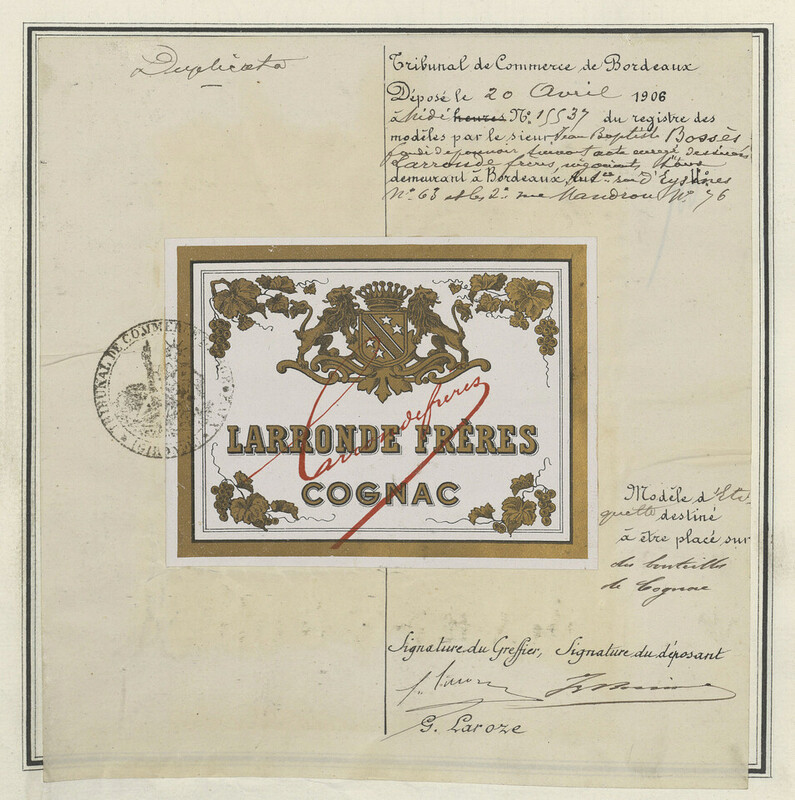 Duplicata
Tribunal de Commerce de Bordeaux
Déposé le 20 Avril 1906
à Midi heures No. 15537 du registre des
modèles par le sieur Jean Baptiste Bossès
fondé de pouvoir suivant acte
Larronde frères, négociants
demeurant à Bordeaux, d'Eysines
No. 63 et les 2o. rue Mandron No. 76
TRIBUNAL DE COMMERCE
(GIRONDE)
Larrondefreres
LARRONDE FRÈRES
COGNAC
Modèle d'Eti-
quette destiné
à être placé sur
des bouteilles
de Cognac
Signature du Greffier, Signature du déposant
G. Laroze